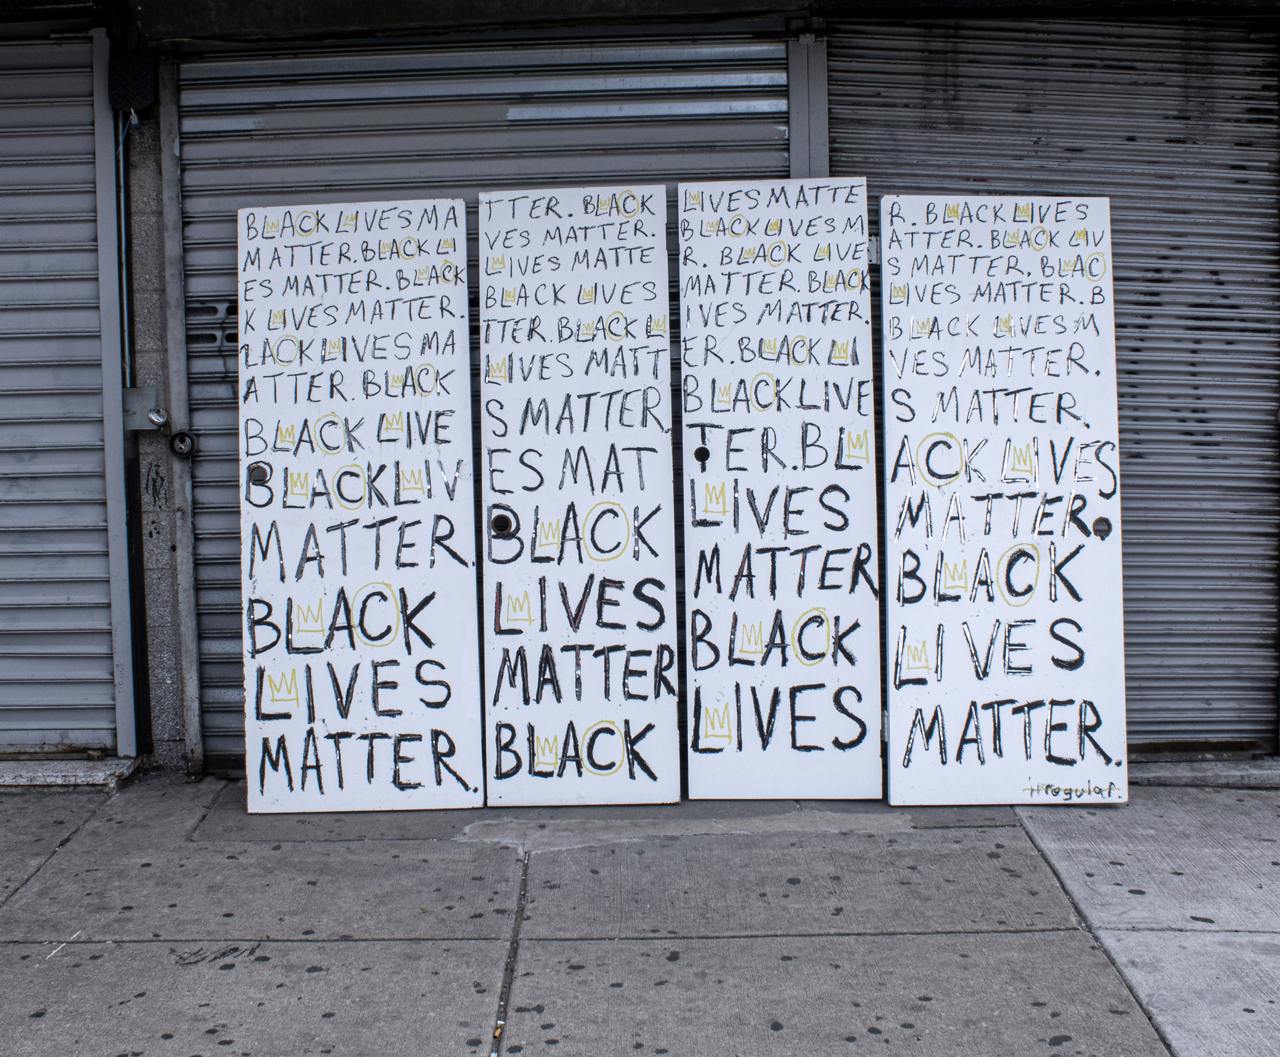 BLACK LIVES MA
MATTER. BLACK LI
ES MATTER. BLACK
K LIVES MATTER.
LACK LIVES MA
ATTER. BLACK
BLACK LIVE
BLACK LIV
MATTER.
BLACK
LIVES
MATTER.
TTER. BLACK
VES MATTER.
LIVES MATTE
BLACK LIVES
TTER. BLACK L
LIVES MATT
S MATTER.
ES MAT
BLACK
LIVES
MATTER
BLACK
LIVES MATTE
BLACK LIVES M
R. BLACK LIVE
MATTER. BLACK
IVES MATTER.
ER. BLACK LI
BLACK LIVE
TER. BL
LIVES
MATTER
BLACK
LIVES
R. BLACK LIVES
ATTER. BLACK LIV
S MATTER. BLAC
LIVES MATTER. B
BLACK LIVES M
VES MATTER.
S MATTER.
ACK LIVES
MATTER.
BLACK
LIVES
MATTER.
irregular